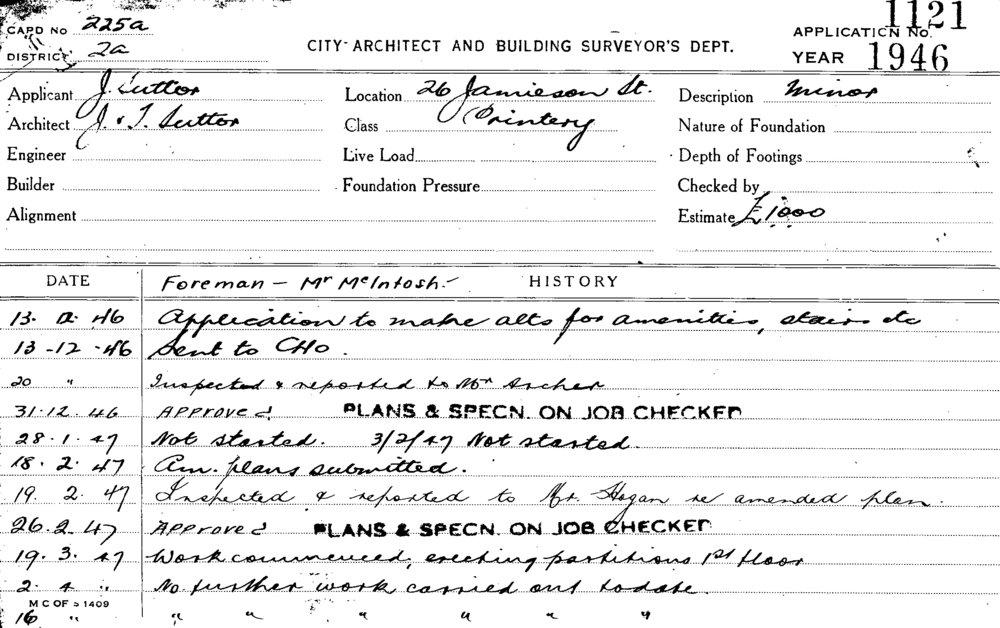 CARD No 225a
DISTRICT 2a
CITY ARCHITECT AND BUILDING SURVEYOR'S DEPT.
APPLICATION No. 1121
YEAR 1946
Applicant J. Suttor Location 26 Jamieson St. Description Minor
Architect J. & T. Suttor Class Printery Nature of Foundation
Engineer Live Load Depth of Footings
Builder Foundation Pressure Checked by
Alignment Estimate £1000
DATE Foreman - Mr McIntosh - HISTORY
13. 12. 46 Application to make alts for amenities, stairs etc
13-12-46 Sent to CHO.
20 " Inspected & reported to Mr Archer
31.12.46 APPROVED PLANS & SPECN. ON JOB CHECKED
28.1.47 Not started. 3/2/47 Not started.
18.2.47 Am. plans submitted.
19. 2. 47 Inspected & reported to Mr. Hogan re amended plan.
26.2.47 APPROVED PLANS & SPECN. ON JOB CHECKED
19.3.47 Work commenced, erecting partitions 1st floor
2. 4 " No further work carried out to date.
M C OF S 1409
16 " " " " " " "